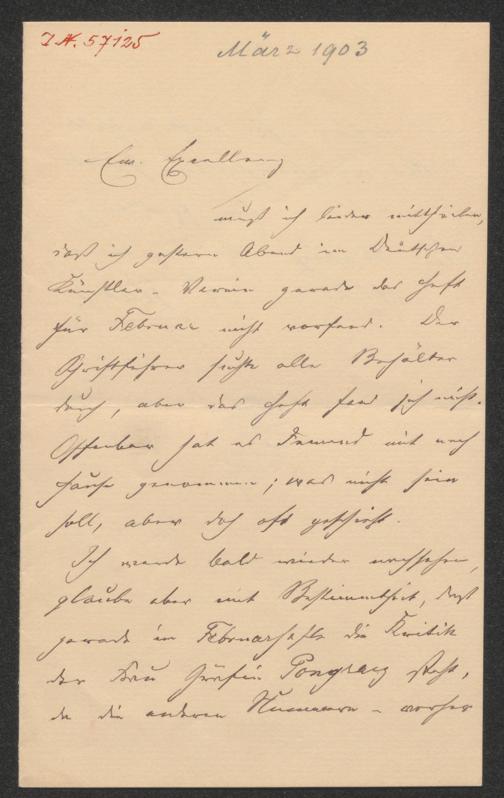 I. N. 57125
März 1903
Euer Excellenz
muß ich leider mittheilen,
daß ich gestern Abend im Deutschen
Künstler-Verein gerade das Heft
für Februar nicht vorfand. Der
Schriftführer suchte alle Behälter
durch, aber das Heft fand sich nicht.
Offenbar hat es Jemand mit nach
Hause genommen; was nicht sein
soll, aber doch oft geschieht.
Ich werde bald wieder nachsehen,
glaube aber mit Bestimmtheit, daß
gerade im Februarhefte die Kritik
der Frau Gräfin Pongracz steht,
da die anderen Nummern - vorher